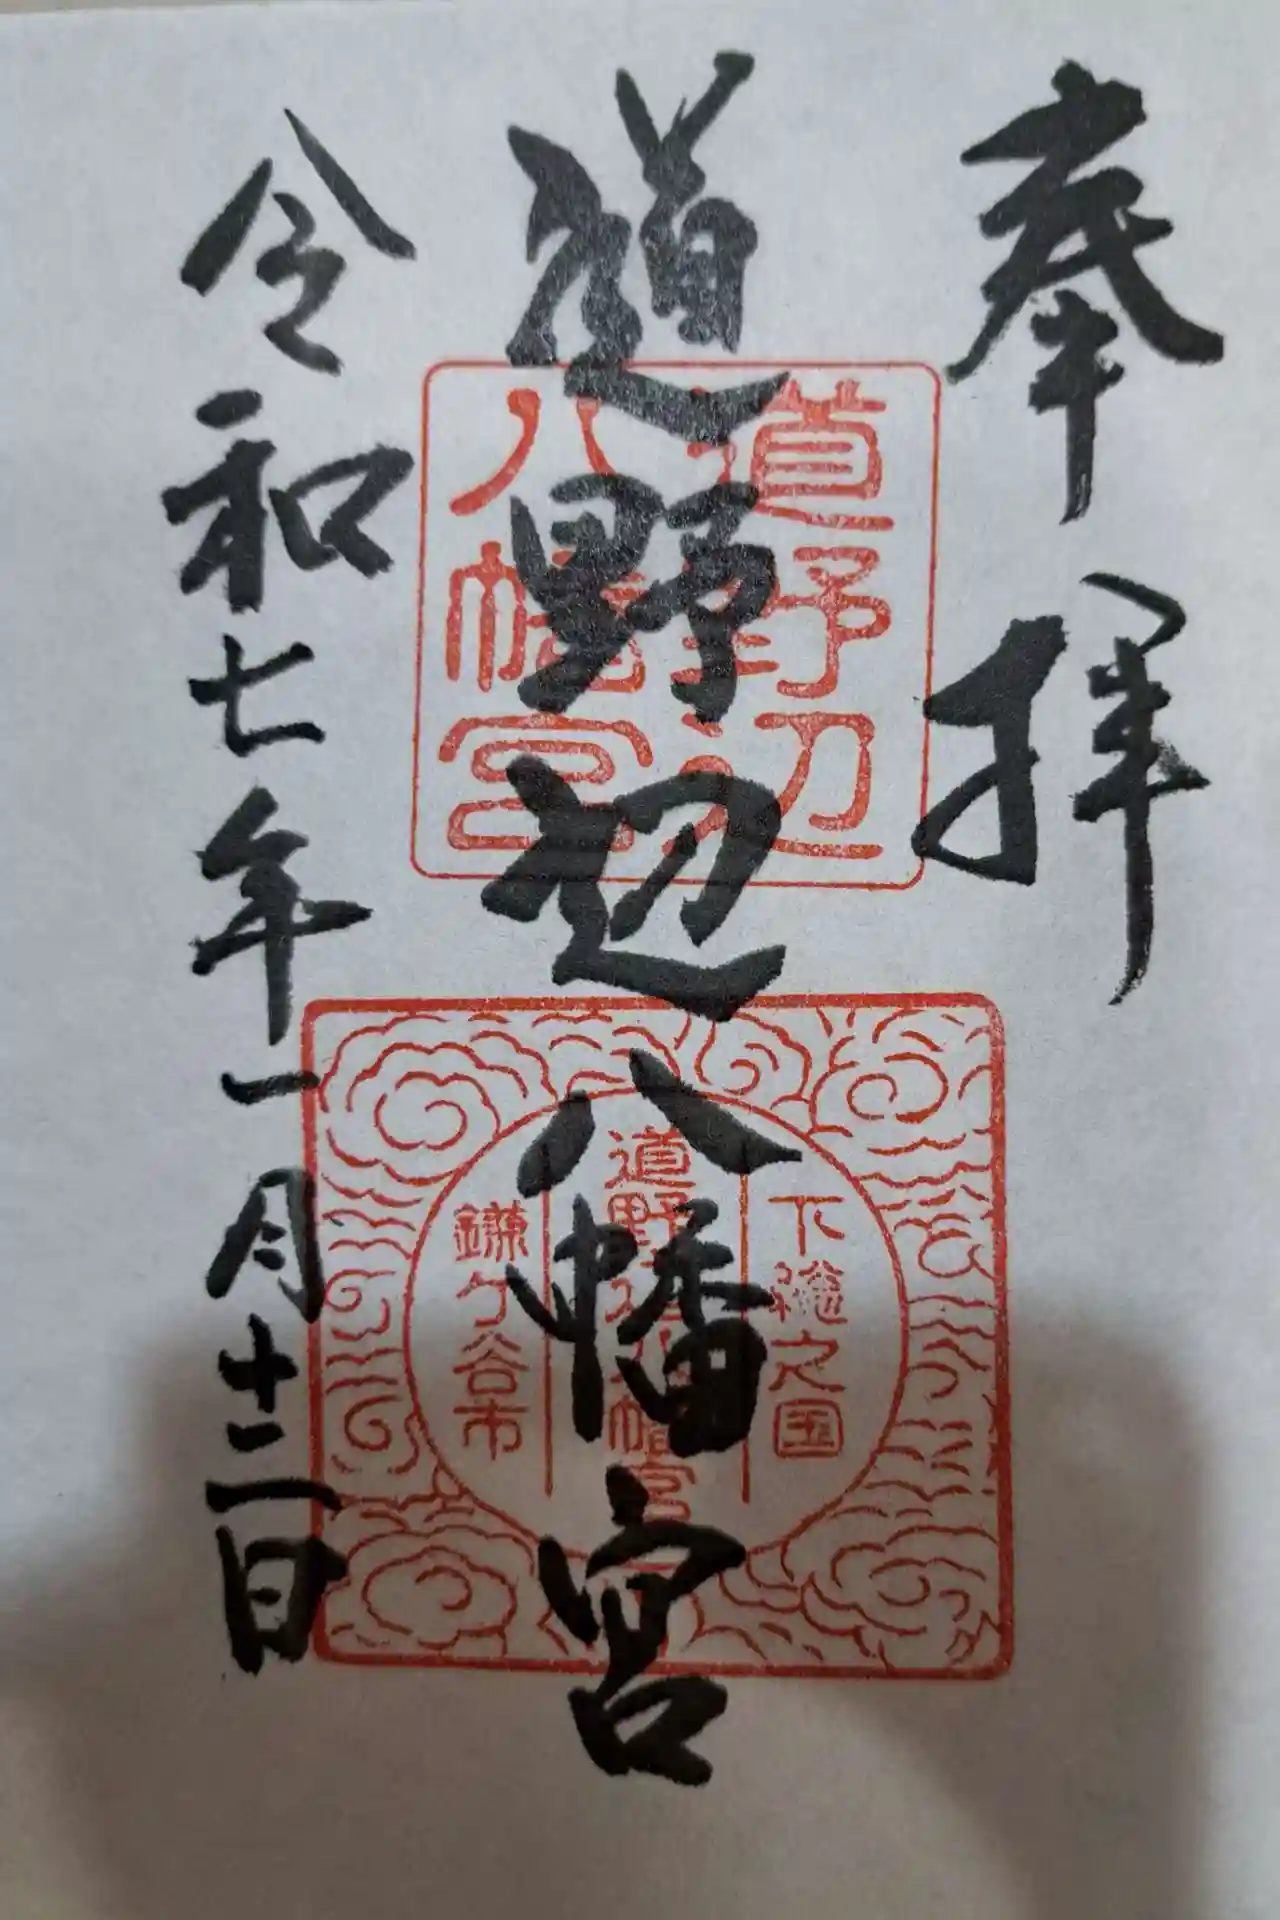 奉拝
道野辺八幡宮
令和七年一月十二日
道野辺
八幡宮
下総之国
道野辺八幡宮
鎌ケ谷市